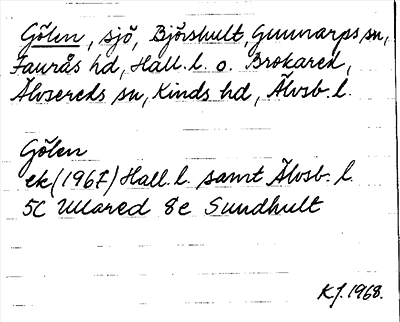 Gölen, sjö, Björshult, Gunnarps sn,
Faurås hd, Hall. l. o. Brokared,
Älvsereds sn, Kinds hd, Älvsb. l.
Gölen
ek (1967) Hall. l. samt Älvsb. l.
5C Ullared 8e Sundhult
KJ. 1968.